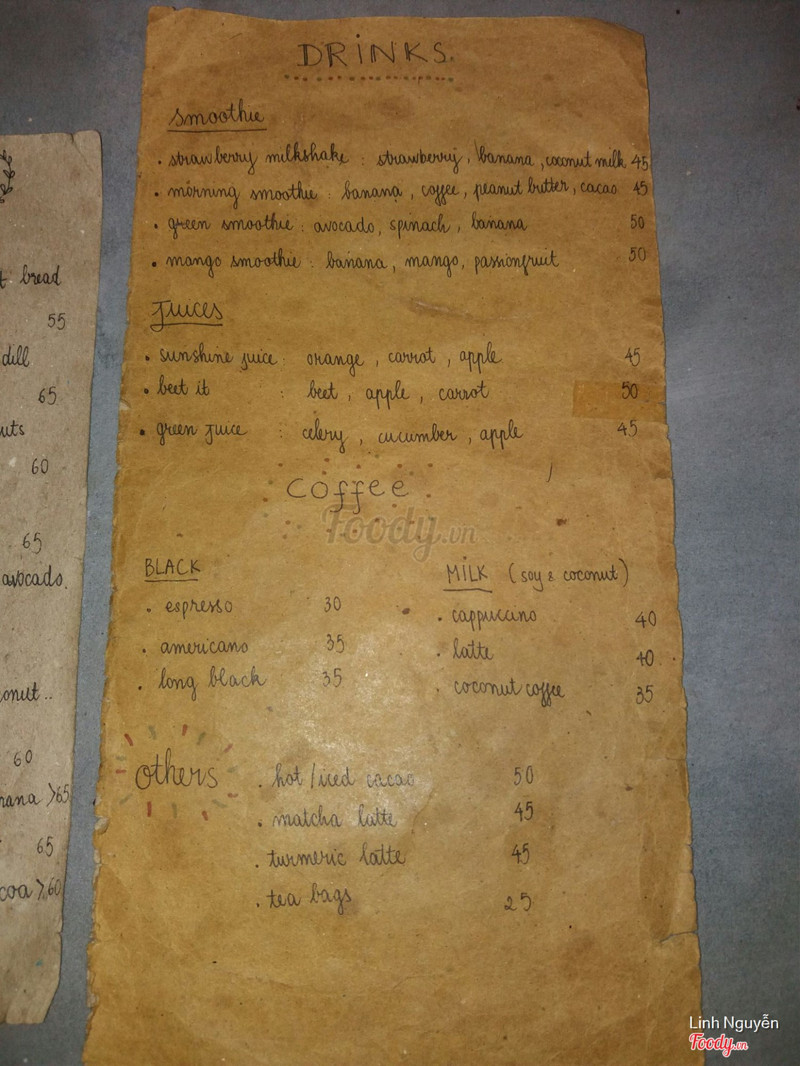 DRINKS.
smoothie
. strawberry milkshake : strawberry, banana, coconut milk 45
. morning smoothie : banana, coffee, peanut butter, cacao 45
. green smoothie : avocado, spinach, banana 50
. mango smoothie : banana, mango, passionfruit 50
Juices
. sunshine juice : orange, carrot, apple 45
. beet it : beet, apple, carrot 50
. green juice : celery, cucumber, apple 45
coffee
BLACK
. espresso 30
. americano 35
. long black 35
MILK (soy & coconut)
. cappuccino 40
. latte 40
. coconut coffee 35
others
. hot/iced cacao 50
. matcha latte 45
. turmeric latte 45
. tea bags 25
bread
55
dill
65
60
65
avocado.
60
65
65
60
Foody.vn
Linh Nguyễn
Foody.vn